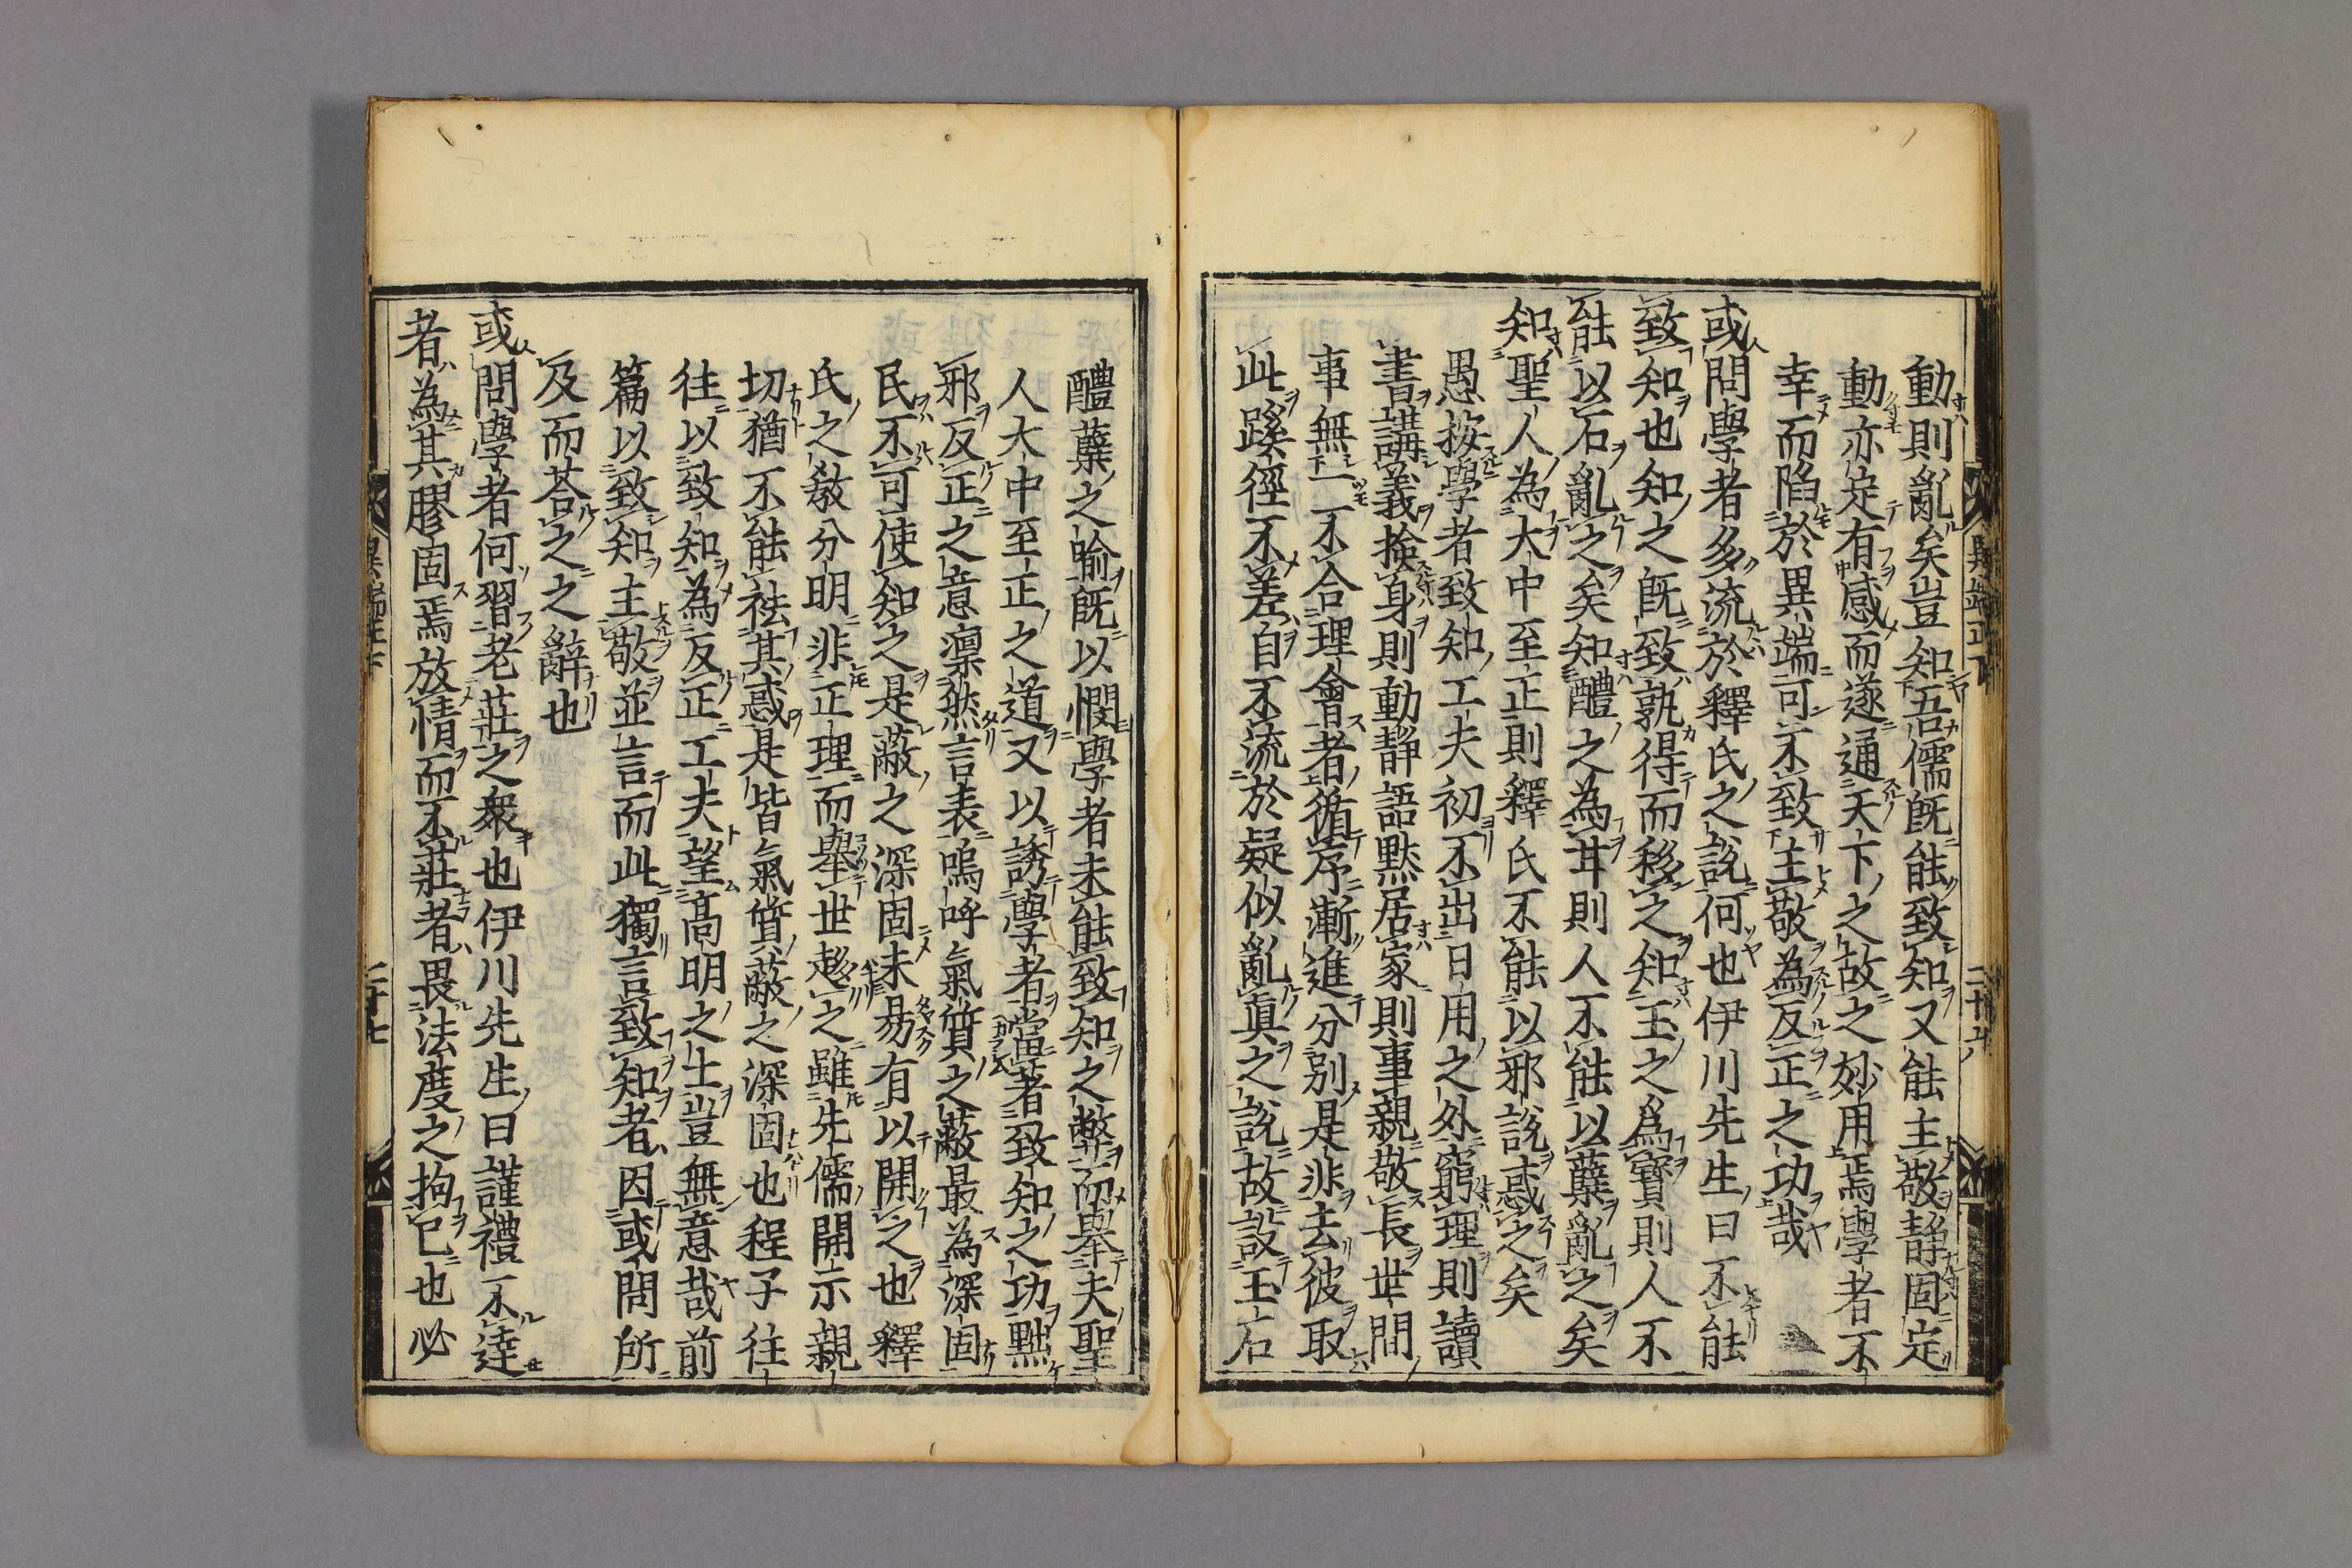 動則亂矣豈知吾儒旣能致知又能主敬靜固定
動亦定有感而遂通天下之故之妙用焉學者不
幸而陷於異端可不致主敬為反正之功哉
或問學者多流於釋氏之說何也伊川先生曰不能
致知也知之旣致孰得而移之知玉之為寶則人不
能以石亂之矣知醴之為甘則人不能以蘗亂之矣
知聖人為大中至正則釋氏不能以邪說惑之矣
愚按學者致知工夫初不出日用之外窮理則讀
書講義撿身則動靜語默居家則事親敬長世間
事無一不合理會者循序漸進分別是非去彼取
此蹊徑不差自不流於疑似亂眞之說故設玉石
醴蘗之喻旣以憫學者未能致知之弊而舉夫聖
人大中至正之道又以誘學者當著致知之功黜
邪反正之意凛然言表嗚呼氣質之蔽最為深固
民不可使知之是蔽之深固未易有以開之也釋
氏之敎分明非正理而舉世趍之雖先儒開示親
切猶不能袪其惑是皆氣質蔽之深固也程子往
往以致知為反正工夫望高明之士豈無意哉前
篇以致知主敬並言而此獨言致知者因或問所
及而荅之之辭也
或問學者何習老莊之衆也伊川先生曰謹禮不達
者為其膠固焉放情而不莊者畏法度之拘已也必